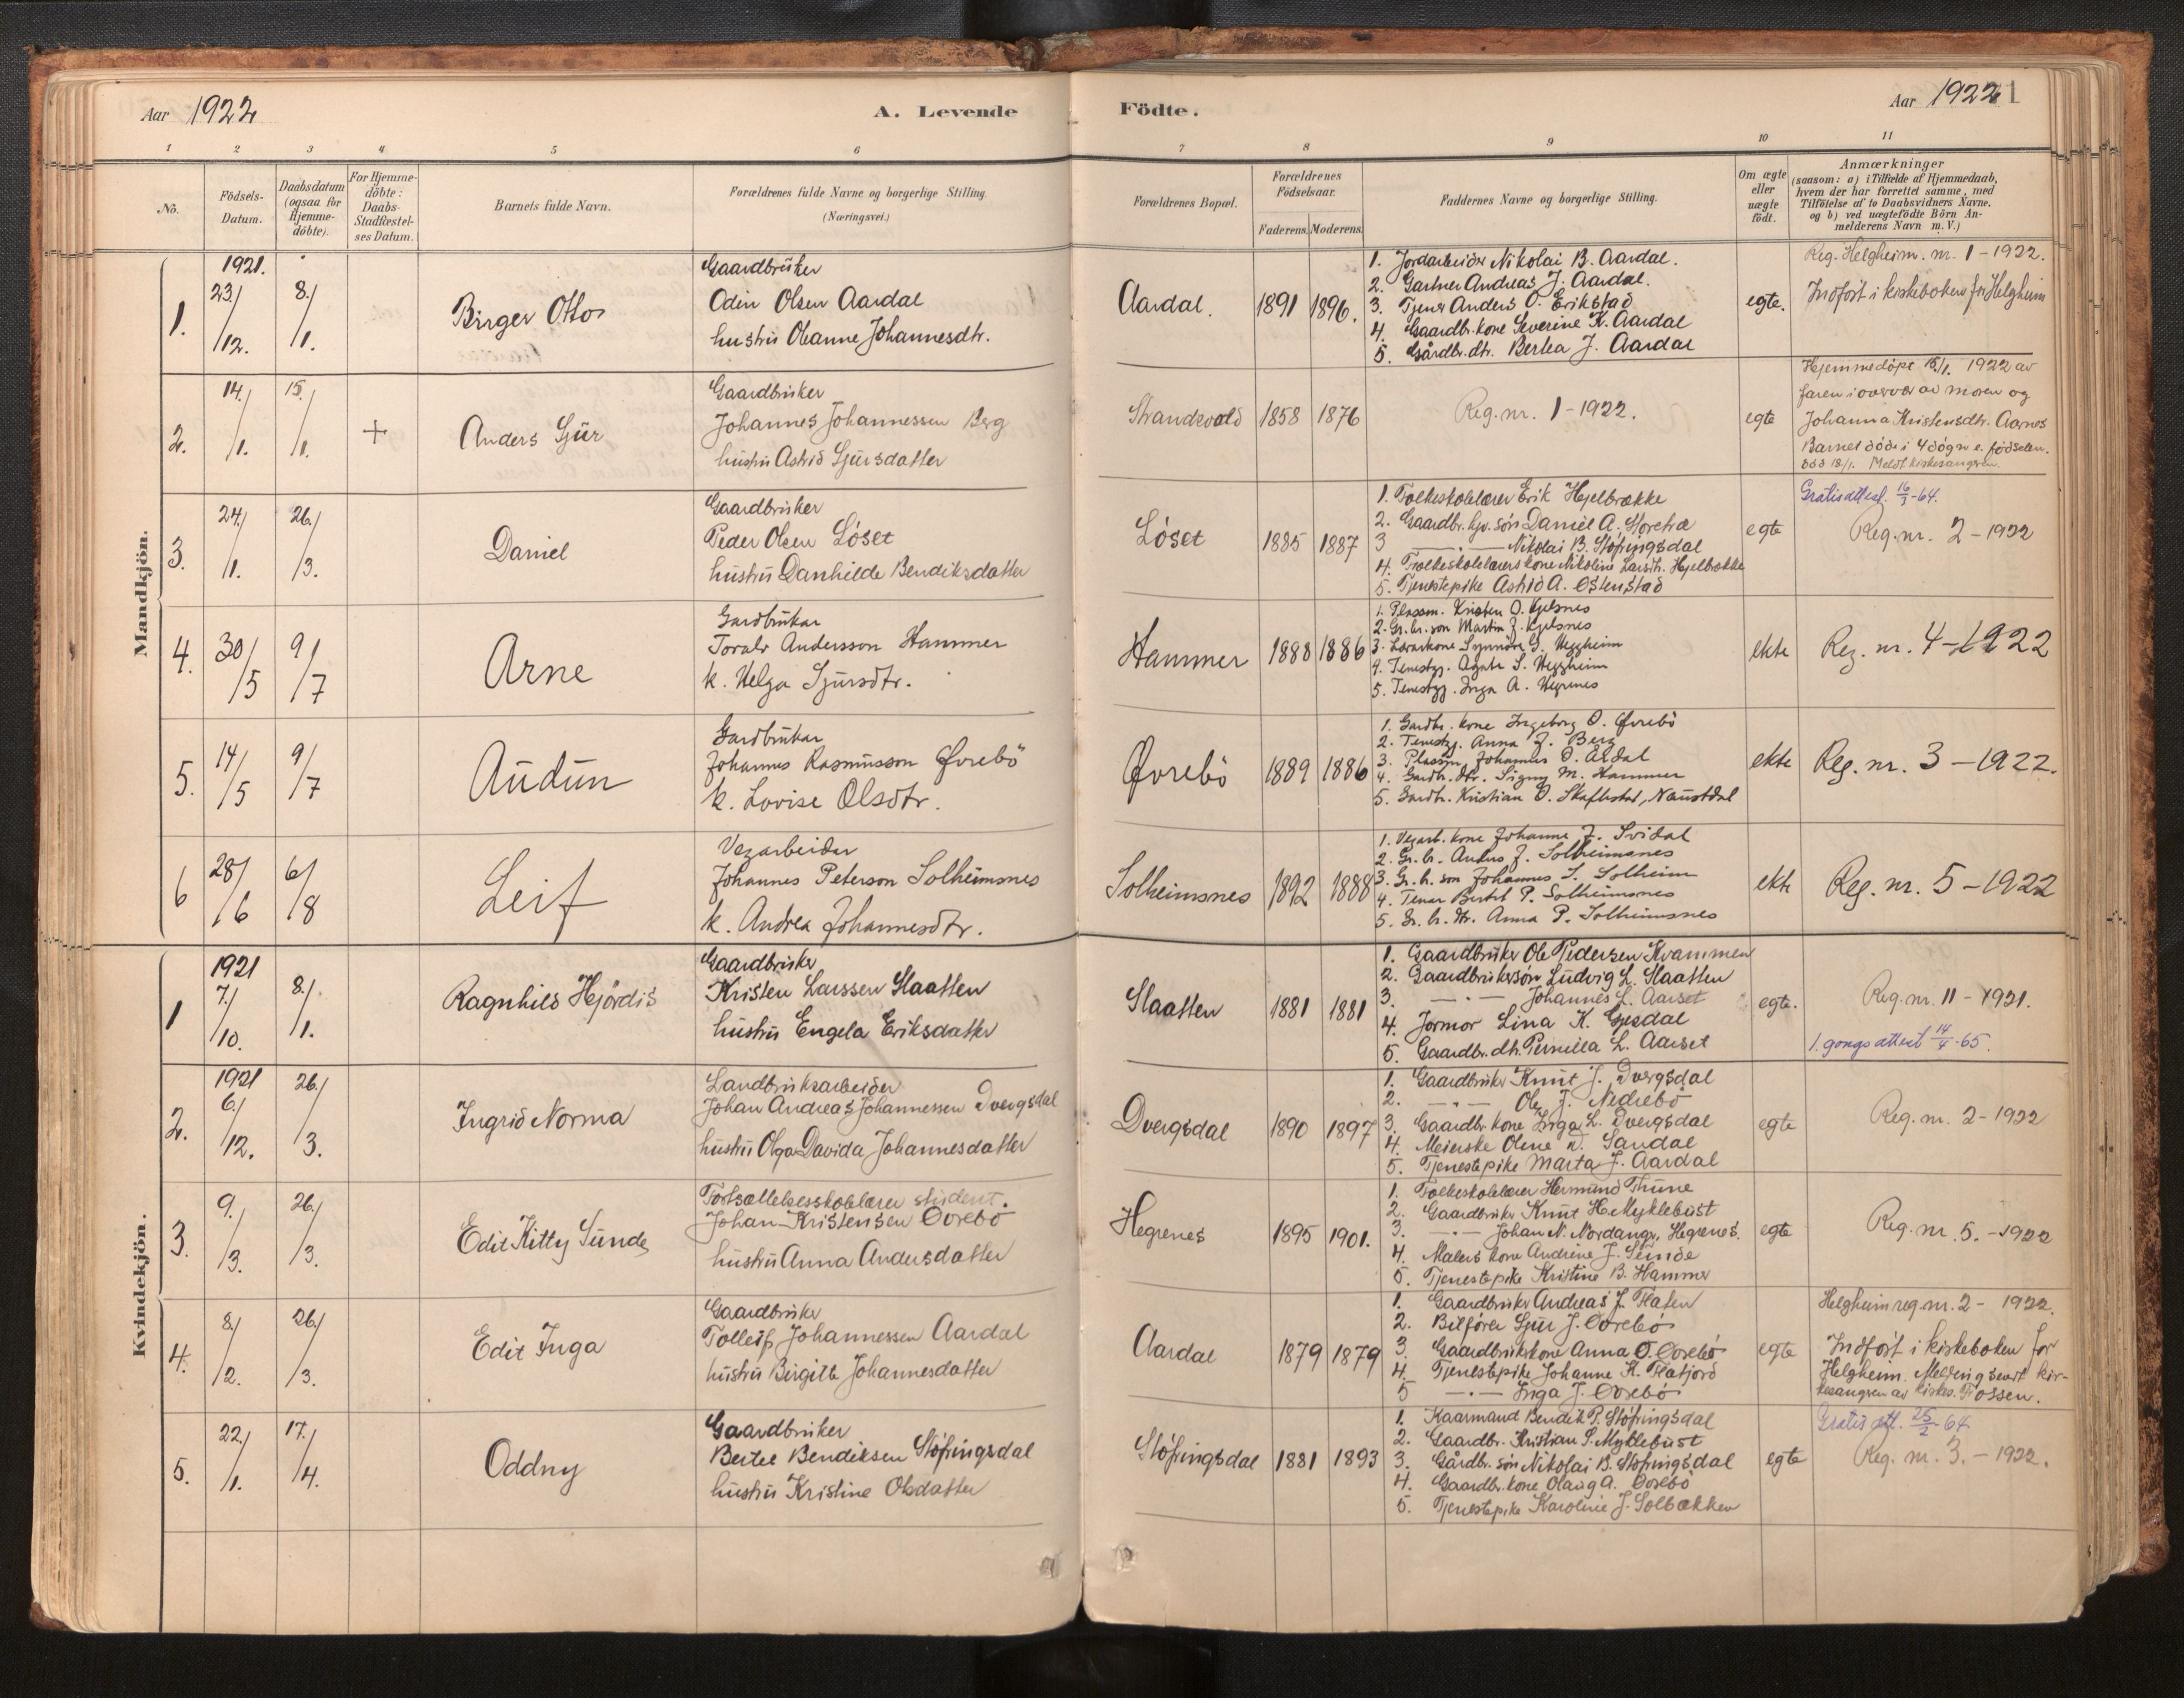 Aar 1922
A. Levende
Födte.
Aar 1922
1 2 3 4 5 6
7 8 9 10 11
No.
Födsels-
Datum.
Daabsdatum
(ogsaa for
Hjemme-
döbte).
For Hjemme-
döbte:
Daabs-
Stadfæstel-
ses Datum.
Barnets fulde Navn.
Forældrenes fulde Navne og borgerlige Stilling.
(Næringsvei.)
Forældrenes Bopæl.
Forældrenes
Födselsaar.
Faderens. Moderens.
Faddernes Navne og borgerlige Stilling.
Om ægte
eller
uægte
födt.
Anmærkninger
(saasom: a) i Tilfælde af Hjemmedaab,
hvem der har forrettet samme, med
Tilföielse af to Daabsvidners Navne.
og b) ved uægtefödte Börn An-
melderens Navn m. V.)
Mandkjön.
1.
1921.
23./12.
8./1.
Birger Otto
Gaardbruker
Odin Olsen Aardal
hustru Oleanne Johannesdtr.
Aardal.
1891 1896.
1. Jordarbeider Nikolai B. Aardal.
2. Gartner Andreas J. Aardal.
3. Tjener Anders O. Erikstad
4. Gaardbr. kone Severine K. Aardal
5. Gårdbr. dtr. Bertea J. Aardal
egte.
Reg. Helgheim. nr. 1 - 1922.
Indført i kirkeboken for Helgheim
2.
14./1.
15./1.
+
Anders Sjur
Gaardbruker
Johannes Johannessen Berg
hustru Astrid Sjursdatter
Strandevold
1858 1876
Reg. nr. 1 - 1922.
egte
Hjemmedøpt 15/1. 1922 av
faren i overvær av moren og
Johanna Kristensdtr. Aarnes
Barnet døde i 4 døgn e. fødselen.
død 18/1. Meldt kirkesangeren.
3.
24./1.
26./3.
Daniel
Gaardbruker
Peder Olsen Løset
hustru Danhilde Bendiksdatter
Løset
1885 1887
1. Folkeskolelærer Erik Hjelbrække
2. Gaardbr. søn Daniel A. Støretræ
3 —.— Nikolai B. Støfringsdal
4. Folkeskolelærers kone Nikoline Larsdtr. Hjelbrække
5. Tjenestepike Astrid A. Ostenstad
egte
Gratis attest 16/3 - 64.
Reg. nr. 2 - 1922
4.
30/5
9/7
Arne
Gardbrukar
Toralv Andersson Hammer
k. Helga Sjursdtr.
Hammer
1888 1886
1. Plassm. Kristen O. Kjelsnes
2. Gr. br. son Martin J. Kjelsnes
3. Lærarkone Synnøve G. Heggheim
4. Tenestgj. Agate S. Heggheim
5. Tenestgj. Inga A. Hegrenes
ekte
Reg. nr. 4 - 1922
5.
14/5
9/7
Audun
Gardbrukar
Johannes Rasmusson Øvrebö
k. Lovise Olsdtr.
Øvrebö
1889 1886
1. Gardbr. kone Ingeborg O. Øvrebö
2. Tenestgj. Anna J. Berg
3. Plassm. Johannes O. Årdal
4. Gardb. dtr. Signy M. Hammer
5. Gardbr. Kristian O. Skaflestad, Naustdal
ekte
Reg. nr. 3 - 1922.
6
28/6
6/8
Leif
Vegarbeider
Johannes Peterson Solheimsnes
k. Andrea Johannesdtr.
Solheimsnes
1892 1888
1. Vegarb. kone Johanne J. Svidal
2. Gr. br. Anders J. Solheimsnes
3. Gr. b. son Johannes S. Solheim
4. Tenar Bertel P. Solheimsnes
5. Gr. b. dtr. Anna P. Solheimsnes
ekte
Reg. nr. 5 - 1922
Kvindekjön.
1
1921
7./10.
8./1.
Ragnhild Hjørdis
Gaardbruker
Kristen Larssen Slaatten
hustru Engela Eriksdatter
Slaatten
1881 1881
1. Gaardbruker Ole Pedersen Kvammen
2. Gaardbrukersøn Ludvig L. Slaatten
3. —.— Johannes L. Aarset
4. Jormor Lina K. Gjesdal
5. Gaardbr. dtr. Pernilla L. Aarset
egte.
Reg. nr. 11 - 1921.
1. gongs attest 14/4 - 65.
2.
1921
6./12.
26./3.
Ingrid Norma
Landbruksarbeider
Johan Andreas Johannessen Dvergsdal
hustru Olga Davida Johannesdatter
Dvergsdal
1890 1897
1. Gaardbruker Knut J. Dvergsdal
2. —.— Ole J. Nedrebø
3. Gaardbr. kone Inga L. Dvergsdal
4. Meierske Oline D. Sandal
5. Tjenestepike Marta J. Aardal
egte
Reg. nr. 2 - 1922
3.
9./3.
26./3.
Edit Kitty Sunde
Fortsættelsesskolelærer student.
Johan Kristensen Øvrebø
hustru Anna Andersdatter
Hegrenes
1895 1901.
1. Folkeskolelærer Hermund Thune
2. Gaardbruker Knut H. Myklebust
3. —.— Johan N. Nordanger, Hegrenes.
4. Malers kone Andrine J. Sunde
5. Tjenestepike Kristine B. Hammer
egte
Reg. nr. 5. - 1922
4.
8./2.
26./3.
Edit Inga
Gaardbruker
Tolleif Johannessen Aardal
hustru Birgitte Johannesdatter
Aardal
1879 1879
1. Gaardbruker Andreas J. Flaten
2. Bilfører Sjur J. Øvrebø
3. Gaardbrukerkone Anna O. Øvrebø
4. Tjenestepike Johanne K. Flatjord
5 —.— Inga J. Øvrebø
egte
Helgheim reg. nr. 2 - 1922.
Indført i kirkeboken for
Helgheim. Melding sendt kir-
kesangeren av kirkes. Fossen.
5.
22./1.
17./4.
Oddny
Gaardbruker
Bertel Bendiksen Støfringsdal
hustru Kristine Olsdatter
Støfringsdal
1881 1893
1. Kaarmand Bendik P. Støfringsdal
2. Gaardbr. Kristian S. Myklebust
3. Gårdbr. søn Nikolai B. Støfringsdal
4. Gaardbr. kone Olaug A. Øvrebø
5. Tjenestepike Karoline J. Solbakken
egte
Gratis att. 25/2 - 64
Reg. nr. 3. - 1922.